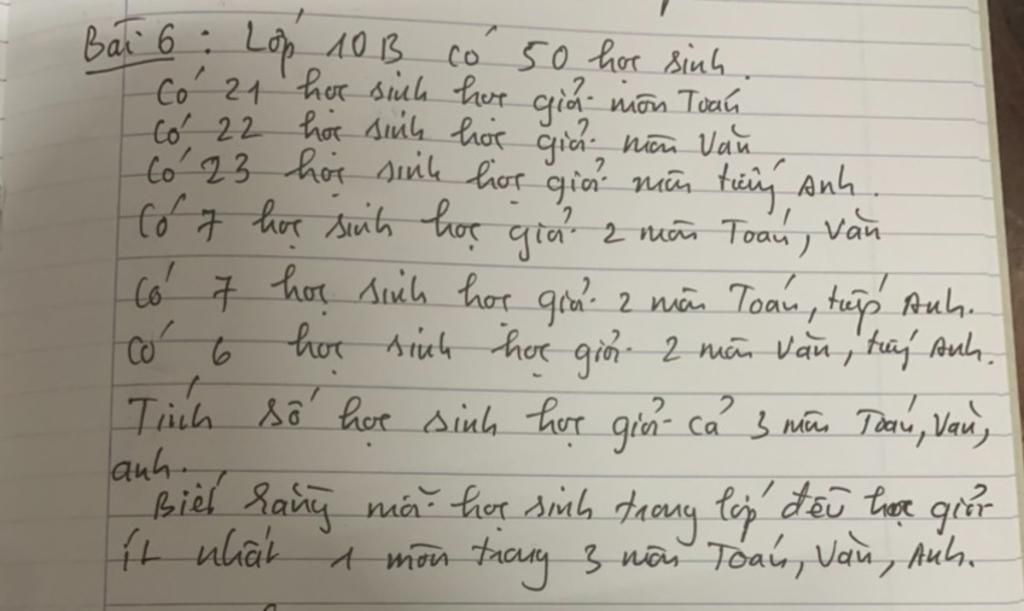 Bài 6 : Lớp 10B có 50 học sinh.
Có 21 học sinh học giỏi môn Toán
Có 22 học sinh học giỏi môn Văn
Có 23 học sinh học giỏi môn tiếng Anh.
Có 7 học sinh học giỏi 2 môn Toán, Văn
Có 7 học sinh học giỏi 2 môn Toán, tiếng Anh.
Có 6 học sinh học giỏi 2 môn Văn, tiếng Anh.
Tính số học sinh học giỏi cả 3 môn Toán, Văn,
anh.
Biết rằng mỗi học sinh trong lớp đều học giỏi
ít nhất 1 môn trong 3 môn Toán, Văn, Anh.